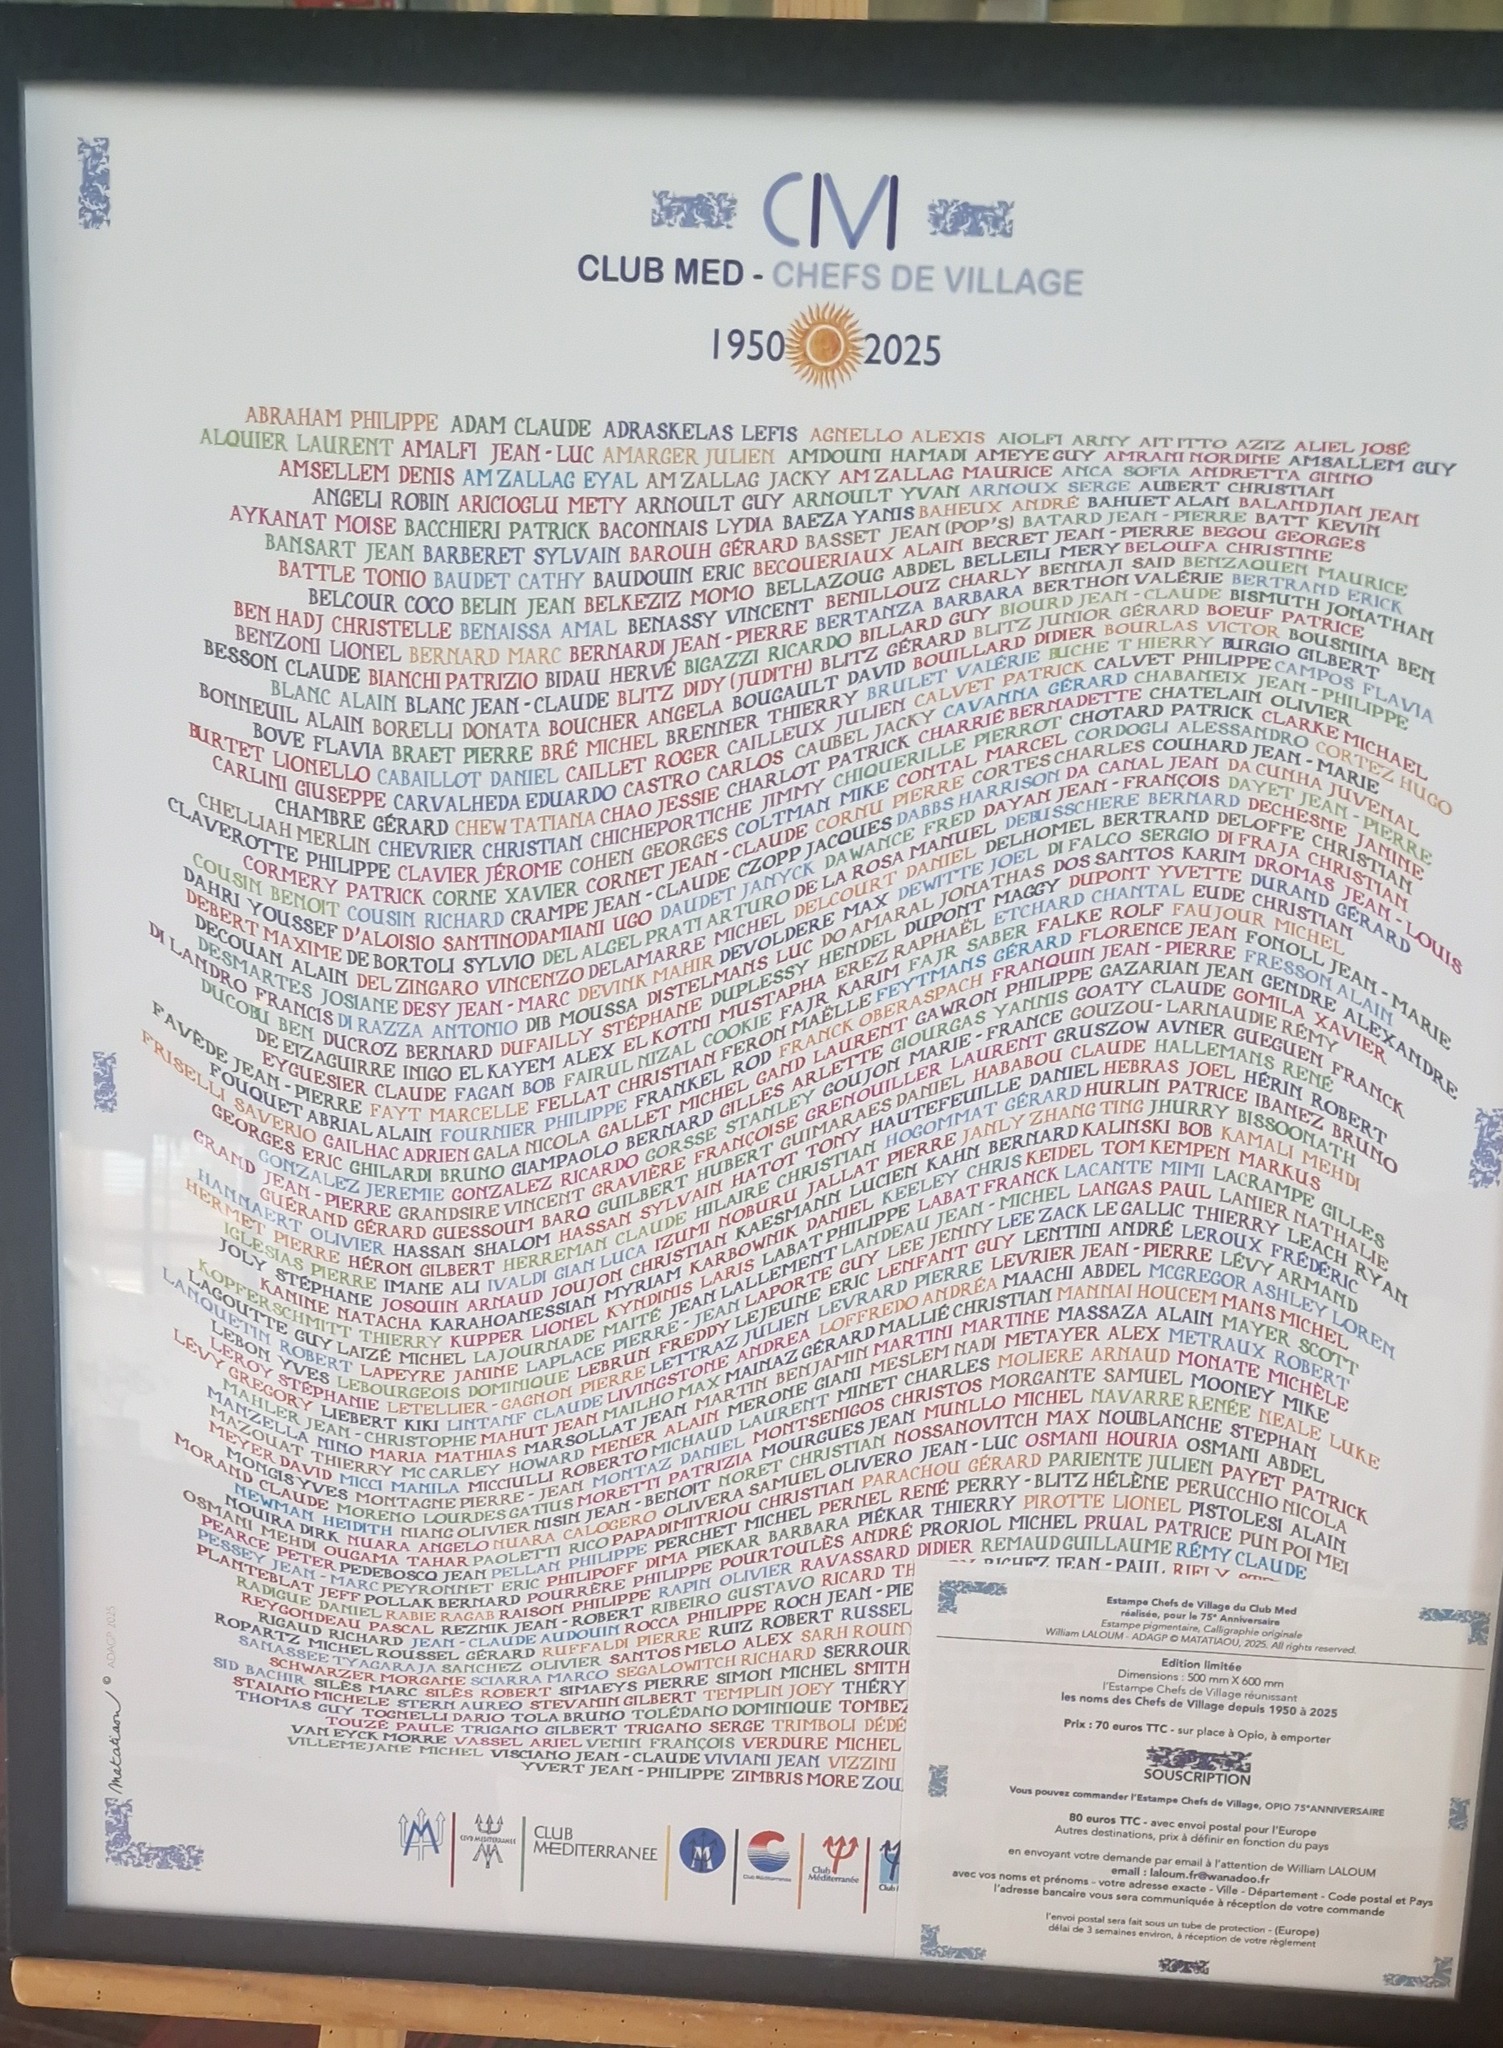 CLUB MED - CHEFS DE VILLAGE
1950 2025
ABRAHAM PHILIPPE ADAM CLAUDE ADRASKELAS LEFIS AGNELLO ALEXIS AIOLFI ARNY AIT ITTO AZIZ ALIEL JOSÉ
ALQUIER LAURENT AMALFI JEAN-LUC AMARGER JULIEN AMDOUNI HAMADI AMEYE GUY AMRANI NORDINE AMSALLEM GUY
AMSELLEM DENIS AMZALLAG EYAL AMZALLAG JACKY AMZALLAG MAURICE ANCA SOFIA ANDRETTA GINNO
ANGELI ROBIN ARICIOGLU METY ARNOULT GUY ARNOULT YVAN ARNOUX SERGE AUBERT CHRISTIAN
AYKANAT MOISE BACCHIERI PATRICK BACONNAIS LYDIA BAEZA YANIS BAHEUX ANDRÉ BAHUET ALAN BALANDJIAN JEAN
BANSART JEAN BARBERET SYLVAIN BAROUH GÉRARD BASSET JEAN (POP'S) BATARD JEAN-PIERRE BATT KEVIN
BATTLE TONIO BAUDET CATHY BAUDOUIN ERIC BECQUERIAUX ALAIN BECRET JEAN-PIERRE BEGOU GEORGES
BELCOUR COCO BELIN JEAN BELKEZIZ MOMO BELLAZOUG ABDEL BELLEILI MERY BELOUFA CHRISTINE
BEN HADJ CHRISTELLE BENAISSA AMAL BENASSY VINCENT BENILLOUZ CHARLY BENNAJI SAID BENZAQUEN MAURICE
BENZONI LIONEL BERNARD MARC BERNARDI JEAN-PIERRE BERTANZA BARBARA BERTHON VALÉRIE BERTRAND ERICK
BESSON CLAUDE BIANCHI PATRIZIO BIDAU HERVÉ BIGAZZI RICARDO BILLARD GUY BIOURD JEAN-CLAUDE BISMUTH JONATHAN
BLANC ALAIN BLANC JEAN-CLAUDE BLITZ DIDY (JUDITH) BLITZ GÉRARD BLITZ JUNIOR GÉRARD BOEUF PATRICE
BONNEUIL ALAIN BORELLI DONATA BOUCHER ANGELA BOUGAULT DAVID BOUILLARD DIDIER BOURLAS VICTOR BOUSNINA BEN
BOVE FLAVIA BRAET PIERRE BRÉ MICHEL BRENNER THIERRY BRULET VALÉRIE BUCHE THIERRY BURGIO GILBERT
BURTET LIONELLO CABAILLOT DANIEL CAILLET ROGER CAILLEUX JULIEN CALVET PATRICK CALVET PHILIPPE CAMPOS FLAVIA
CARLINI GIUSEPPE CARVALHEDA EDUARDO CASTRO CARLOS CAUBEL JACKY CAVANNA GÉRARD CHABANEIX JEAN-PHILIPPE
CHAMBRE GÉRARD CHEW TATIANA CHAO JESSIE CHARLOT PATRICK CHARRIÉ BERNADETTE CHATELAIN OLIVIER
CHELLIAH MERLIN CHEVRIER CHRISTIAN CHICHEPORTICHE JIMMY CHIQUERILLE PIERROT CHOTARD PATRICK CLARKE MICHAEL
CLAVEROTTE PHILIPPE CLAVIER JÉRÔME COHEN GEORGES COLTMAN MIKE CONTAL MARCEL CORDOGLI ALESSANDRO CORTEZ HUGO
CORMERY PATRICK CORNE XAVIER CORNET JEAN-CLAUDE CORNU PIERRE CORTES CHARLES COUHARD JEAN-MARIE
COUSIN BENOIT COUSIN RICHARD CRAMPE JEAN-CLAUDE CZOPP JACQUES DABBS HARRISON DA CANAL JEAN DA CUNHA JUVENAL
DAHRI YOUSSEF D'ALOISIO SANTINO DAMIANI UGO DAUDET JANYCK DAWANCE FRED DAYAN JEAN-FRANÇOIS DAYET JEAN-PIERRE
DEBERT MAXIME DE BORTOLI SYLVIO DEL ALGEL PRATI ARTURO DE LA ROSA MANUEL DEBUSSCHERE BERNARD DECHESNE JANINE
DECOUAN ALAIN DEL ZINGARO VINCENZO DELAMARRE MICHEL DELCOURT DANIEL DELHOMEL BERTRAND DELOFFE CHRISTIAN
DESMARTES JOSIANE DESY JEAN-MARC DEVINK MAHIR DEVOLDERE MAX DEWITTE JOEL DI FALCO SERGIO DI FRAJA CHRISTIAN
DI LANDRO FRANCIS DI RAZZA ANTONIO DIB MOUSSA DISTELMANS LUC DO AMARAL JONATHAS DOS SANTOS KARIM DROMAS JEAN-LOUIS
DUCOBU BEN DUCROZ BERNARD DUFAILLY STÉPHANE DUPLESSY HENDEL DUPONT MAGGY DUPONT YVETTE DURAND GÉRARD
DE EIZAGUIRRE INIGO EL KAYEM ALEX EL KOTNI MUSTAPHA EREZ RAPHAËL ETCHARD CHANTAL EUDE CHRISTIAN
EYGUESIER CLAUDE FAGAN BOB FAIRUL NIZAL COOKIE FAJR KARIM FAJR SABER FALKE ROLF FAUJOUR MICHEL
FAVÈDE JEAN-PIERRE FAYT MARCELLE FELLAT CHRISTIAN FERON MAËLLE FEYTMANS GÉRARD FLORENCE JEAN FONOLL JEAN-MARIE
FOUQUET ABRIAL ALAIN FOURNIER PHILIPPE FRANKEL ROD FRANCK OBERASPACH FRANQUIN JEAN-PIERRE FRESSON ALAIN
FRISELLI SAVERIO GAILHAC ADRIEN GALA NICOLA GALLET MICHEL GAND LAURENT GAWRON PHILIPPE GAZARIAN JEAN GENDRE ALEXANDRE
GEORGES ERIC GHILARDI BRUNO GIAMPAOLO BERNARD GILLES ARLETTE GIOURGAS YANNIS GOATY CLAUDE GOMILA XAVIER
GONZALEZ JEREMIE GONZALEZ RICARDO GORSSE STANLEY GOUJON MARIE-FRANCE GOUZOU-LARNAUDIE RÉMY
GRAND JEAN-PIERRE GRANDSIRE VINCENT GRAVIÈRE FRANÇOISE GRENOUILLER LAURENT GRUSZOW AVNER GUEGUEN FRANCK
GUÉRAND GÉRARD GUESSOUM BARQ GUILBERT HUBERT GUIMARAES DANIEL HABABOU CLAUDE HALLEMANS RENÉ
HANNAERT OLIVIER HASSAN SHALOM HASSAN SYLVAIN HATOT TONY HAUTEFEUILLE DANIEL HEBRAS JOEL HÉRIN ROBERT
HERMET PIERRE HÉRON GILBERT HERREMAN CLAUDE HILAIRE CHRISTIAN HOGOMMAT GÉRARD HURLIN PATRICE IBANEZ BRUNO
IGLESIAS PIERRE IMANE ALI IVALDI GIAN LUCA IZUMI NOBURU JALLAT PIERRE JANLY ZHANG TING JHURRY BISSOONATH
JOLY STÉPHANE JOSQUIN ARNAUD JOUJON CHRISTIAN KAESMANN LUCIEN KAHN BERNARD KALINSKI BOB KAMALI MEHDI
KANINE NATACHA KARAHOANESSIAN MYRIAM KARBOWNIK DANIEL KEELEY CHRIS KEIDEL TOM KEMPEN MARKUS
KOPFERSCHMITT THIERRY KUPPER LIONEL KYNDINIS LARIS LABAT PHILIPPE LABAT FRANCK LACANTE MIMI LACRAMPE GILLES
LAGOUTTE GUY LAIZÉ MICHEL LAJOURNADE MAITÉ JEAN LALLEMENT LANDEAU JEAN-MICHEL LANGAS PAUL LANIER NATHALIE
LANQUETIN ROBERT LAPEYRE JANINE LAPLACE PIERRE-JEAN LAPORTE GUY LEE JENNY LEE ZACK LE GALLIC THIERRY LEACH RYAN
LEBON YVES LEBOURGEOIS DOMINIQUE LEBRUN FREDDY LEJEUNE ERIC LENFANT GUY LENTINI ANDRÉ LEROUX FRÉDÉRIC
LEROY STÉPHANIE LETELLIER-GAGNON PIERRE LETTRAZ JULIEN LEVRARD PIERRE LEVRIER JEAN-PIERRE LÉVY ARMAND
LEVY GREGORY LIEBERT KIKI LINTANF CLAUDE LIVINGSTONE ANDREA LOFFREDO ANDRÉA MAACHI ABDEL MCGREGOR ASHLEY LOREN
MAHLER JEAN-CHRISTOPHE MAHUT JEAN MAILHO MAX MAINAZ GÉRARD MALLIÉ CHRISTIAN MANNAI HOUCEM MANS MICHEL
MANZELLA NINO MARIA MATHIAS MARSOLLAT JEAN MARTIN BENJAMIN MARTINI MARTINE MASSAZA ALAIN MAYER SCOTT
MAZOUAT THIERRY MC CARLEY HOWARD MENER ALAIN MERONE GIANI MESLEM NADI METAYER ALEX METRAUX ROBERT
MEYER DAVID MICCI MANILA MICCIULLI ROBERTO MICHAUD LAURENT MINET CHARLES MOLIERE ARNAUD MONATE MICHÈLE
MONGIS YVES MONTAGNE PIERRE-JEAN MONTAZ DANIEL MONTSENIGOS CHRISTOS MORGANTE SAMUEL MOONEY MIKE
MORAND CLAUDE MORENO LOURDES GATIUS MORETTI PATRIZIA MOURGUES JEAN MUNLLO MICHEL NAVARRE RENÉE NEALE LUKE
NEWMAN HEIDITH NIANG OLIVIER NISIN JEAN-BENOIT NORET CHRISTIAN NOSSANOVITCH MAX NOUBLANCHE STEPHAN
NOUIRA DIRK NUARA ANGELO NUARA CALOGERO OLIVERA SAMUEL OLIVERO JEAN-LUC OSMANI HOURIA OSMANI ABDEL
OSMANI MEHDI OUGAMA TAHAR PAOLETTI RICO PAPADIMITRIOU CHRISTIAN PARACHOU GÉRARD PARIENTE JULIEN PAYET PATRICK
PEARCE PETER PEDEBOSCQ JEAN PELLAN PHILIPPE PERCHET MICHEL PERNEL RENÉ PERRY-BLITZ HÉLÈNE PERUCCHIO NICOLA
PESSEY JEAN-MARC PEYRONNET ERIC PHILIPOFF DIMA PIEKAR BARBARA PIÉKAR THIERRY PIROTTE LIONEL PISTOLESI ALAIN
PLANTEBLAT JEFF POLLAK BERNARD POURRÈRE PHILIPPE POURTOULÈS ANDRÉ PRORIOL MICHEL PRUAL PATRICE PUN POI MEI
RADIGUE DANIEL RABIE RAGAB RAISON PHILIPPE RAPIN OLIVIER RAVASSARD DIDIER REMAUD GUILLAUME RÉMY CLAUDE
REYGONDEAU PASCAL REZNIK JEAN-ROBERT RIBEIRO GUSTAVO RICARD TH RICHEZ JEAN-PAUL
RIGAUD RICHARD JEAN-CLAUDE AUDOUIN ROCCA PHILIPPE ROCH JEAN-PIE
ROPARTZ MICHEL ROUSSEL GÉRARD RUFFALDI PIERRE RUIZ ROBERT RUSSEL
SANASSEE TYAGARAJA SANCHEZ OLIVIER SANTOS MELO ALEX SARH ROUN
SCHWARZER MORGANE SCIARRA MARCO SEGALOWITCH RICHARD SERROUR
SID BACHIR SILÈS MARC SILÈS ROBERT SIMAEYS PIERRE SIMON MICHEL SMITH
STAIANO MICHELE STERN AUREO STEVANIN GILBERT TEMPLIN JOEY THÉRY
THOMAS GUY TOGNELLI DARIO TOLA BRUNO TOLÉDANO DOMINIQUE TOMBEZ
TOUZÉ PAULE TRIGANO GILBERT TRIGANO SERGE TRIMBOLI DÉDÉ
VAN EYCK MORRE VASSEL ARIEL VENIN FRANÇOIS VERDURE MICHEL
VILLEMEJANE MICHEL VISCIANO JEAN-CLAUDE VIVIANI JEAN VIZZINI
YVERT JEAN-PHILIPPE ZIMBRIS MORE ZOU
matatiaou © ADAGP 2025
CLUB MEDITERRANEE
CLUB
MEDITERRANEE
Club Méditerranée
Club
Méditerranée
Club
Estampe Chefs de Village du Club Med
réalisée, pour le 75° Anniversaire
Estampe pigmentaire, Calligraphie originale
William LALOUM - ADAGP © MATATIAOU, 2025. All rights reserved.
Edition limitée
Dimensions : 500 mm X 600 mm
l'Estampe Chefs de Village réunissant
les noms des Chefs de Village depuis 1950 à 2025
Prix : 70 euros TTC - sur place à Opio, à emporter
SOUSCRIPTION
Vous pouvez commander l'Estampe Chefs de Village, OPIO 75°ANNIVERSAIRE
80 euros TTC - avec envoi postal pour l'Europe
Autres destinations, prix à définir en fonction du pays
en envoyant votre demande par email à l'attention de William LALOUM
email : laloum.fr@wanadoo.fr
avec vos noms et prénoms - votre adresse exacte - Ville - Département - Code postal et Pays
l'adresse bancaire vous sera communiquée à réception de votre commande
l'envoi postal sera fait sous un tube de protection - (Europe)
délai de 3 semaines environ, à réception de votre règlement